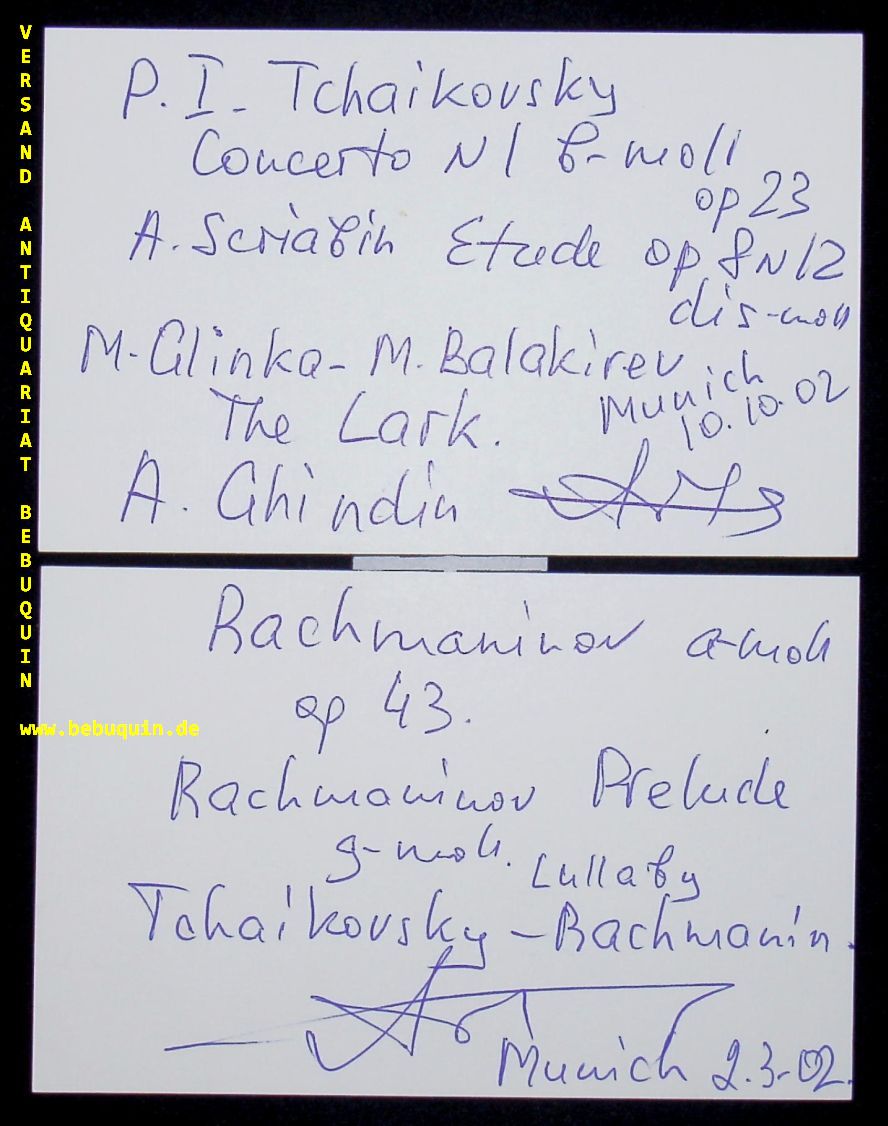 VERSAND ANTIQUARIAT BEBUQUIN
www.bebuquin.de
P. I. Tchaikovsky
Concerto N1 b-moll
op 23
A. Scriabin Etude op 8 N12
dis-moll
M. Glinka - M. Balakirev
The Lark.
Munich
10.10.02
A. Ghindin
Rachmaninov a-moll
op 43.
Rachmaninov Prelude
g-moll. Lullaby
Tchaikovsky - Rachmanin.
Munich 2.3.02.